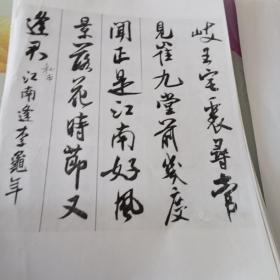 岐王宅裏尋常
見崔九堂前幾度
聞正是江南好風
景落花時節又
逢君
江南逢李龜年